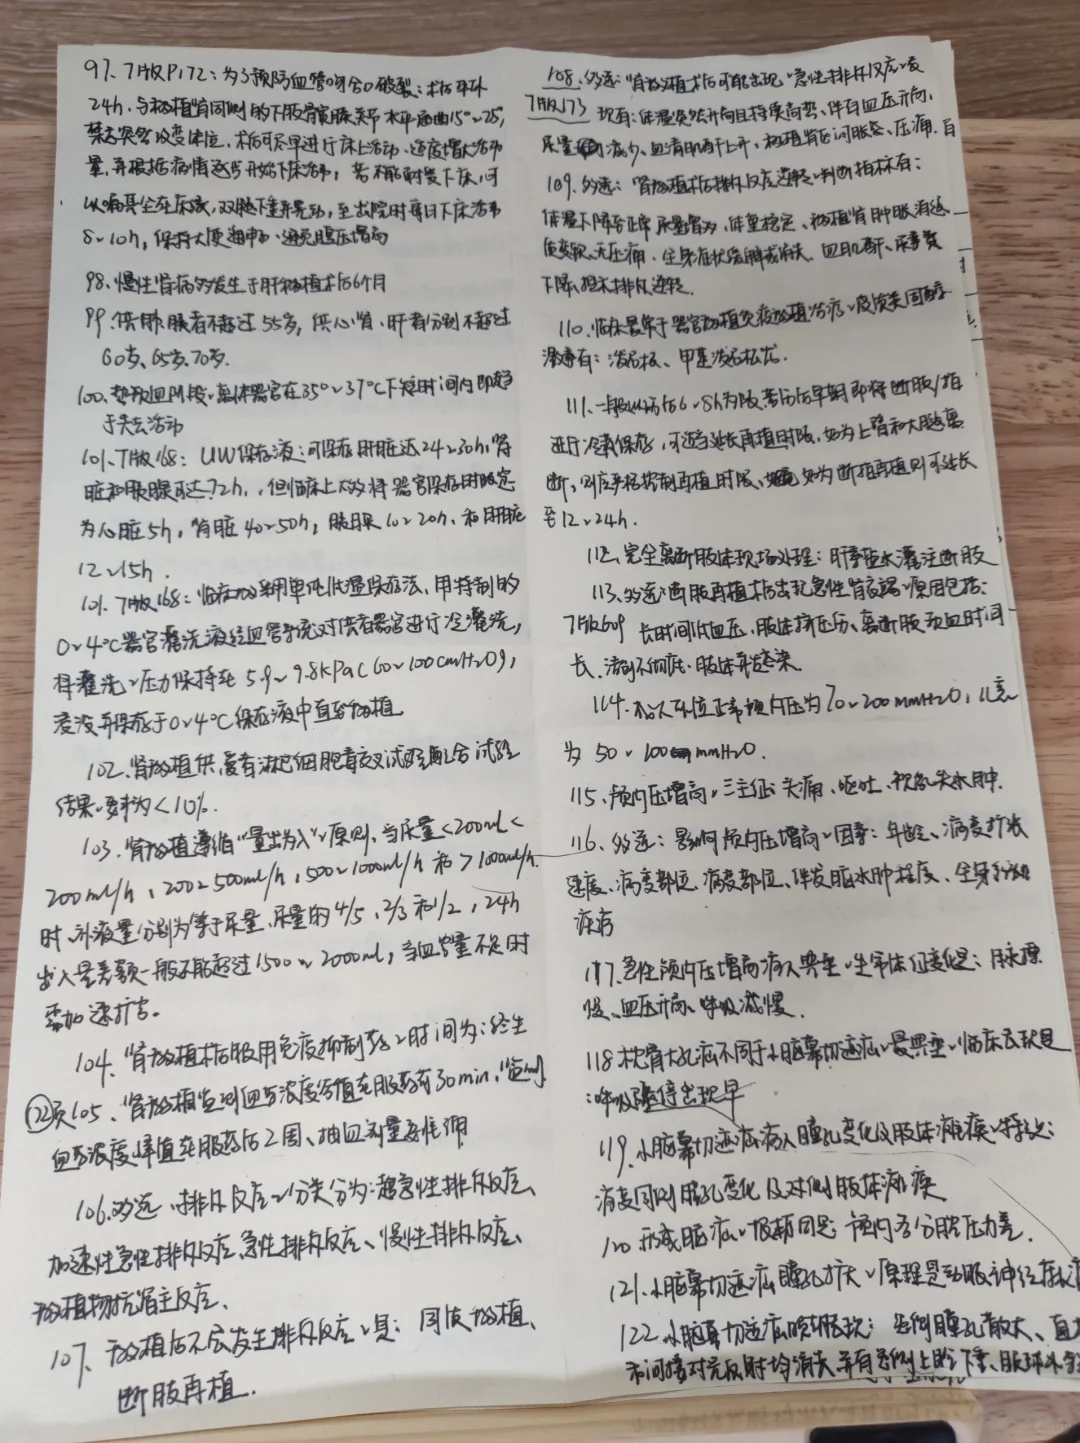 97、7版P172：为了预防血管吻合口破裏：术后平卧
24h，与移植肾同侧的下肢髋膝关节水平屈曲15°~25°，
禁忌突然改变体位，术后尽早进行床上活动、适度增大活动
量，并根据病情适当开始下床活动，若不能耐受下床，可
以端坐在床缘，双腿下垂并晃动，至出院时每日下床活动
8~10h，保持大便通畅、避免腹压增高
98、慢性肾病多发生于肝移植术后6个月
99、供肺、胰者不超过55岁，供心、肾、肝者分别不超过
60岁、65岁、70岁.
100、热缺血阶段、离体器官在35°~37℃下短时间内即趋
于失去活动
101、7版168：UW保存液：可保存肝脏达24~30h，肾
脏和胰腺可达72h，但临床上大多将器官保存时限定
为心脏5h，肾脏40~50h，胰腺10~20h，和肝脏
12~15h.
101、7版168：临床多采用单纯低温保存法，用特制的
0~4℃器官灌洗液经血管系统对供者器官进行冷灌洗，
将灌洗压力保持在5.9~9.8kPa(60~100cmH2O)，
浸没并保存于0~4℃保存液中直至移植
102、肾移植供、受者淋巴细胞毒交叉试验配合试验
结果要求为<10%.
103、肾移植遵循"量出为入"原则，当尿量<200ml<
200ml/h，200~500ml/h，500~1000ml/h和>1000ml/h
时、补液量分别为等于尿量、尿量的4/5、2/3和1/2，24h
出入量差额一般不能超过1500~2000ml，当血容量不足时
需加速扩容。
104、肾移植术后服用免疫抑制药时间为：终生
172页105、肾移植监测血药浓度谷值在服药前30min，监测
血药浓度峰值在服药后2周、抽血剂量要准确
106、多选、排斥反应分类分为：超急性排斥反应、
加速性急性排斥反应、急性排斥反应、慢性排斥反应、
移植物抗宿主反应、
107、移植后不会发生排斥反应是：同质移植、
断肢再植.
108、多选：肾移植术后可能出现急性排斥反应表
7版173 现有：体温突然升高且持续高热、伴有血压升高，
尿量减少、血清肌酐上升、移植肾区闷胀感、压痛.
109、多选：肾移植术后排斥反应逆转判断指标有：
体温下降至正常、尿量增多、体重稳定、移植肾肿胀消退
质变软、无压痛、全身症状缓解或消失、血肌酐、尿素氮
下降，提示排斥逆转.
110、临床最常于器官移植免疫移植治疗皮质类固醇
激素有：泼尼松、甲基泼尼松龙.
111、一般以伤后6~8h为限，若伤后早期即将断肢/指
进行冷藏保存，可适当延长再植时限，如为上臂和大腿离
断、则应严格控制再植时限、如为断指再植则可延长
至12~24h.
112、完全离断肢体现场处理：肝素盐水灌注断肢
113、多选：断肢再植术后出现急性肾衰竭原因包括：
7版609 长时间低血压、肢体挤压伤、离断肢缺血时间
长、清创不彻底、肢体并发感染
114、成人平卧位正常颅内压为70~200mmH2O，儿童
为50~100mmH2O.
115、颅内压增高三主征：头痛、呕吐、视乳头水肿.
116、多选：影响颅内压增高因素：年龄、病变扩张
速度、病变部位、病变部位、伴发脑水肿程度、全身系统
疾病
117、急性颅内压增高病人典型生命体征变化是：脉搏
慢、血压升高、呼吸减慢.
118、枕骨大孔疝不同于小脑幕切迹疝最典型临床表现是
：呼吸骤停出现早
119、小脑幕切迹疝病人瞳孔变化及肢体瘫痪特点：
病变同侧瞳孔变化及对侧肢体瘫痪
120 形成脑疝根本原因是：颅内各分腔压力差.
121、小脑幕切迹疝瞳孔扩大原理是动眼神经
122、小脑幕切迹疝晚期表现：患侧瞳孔散大、直
和间接对光反射均消失并有患侧上睑下垂、眼球外